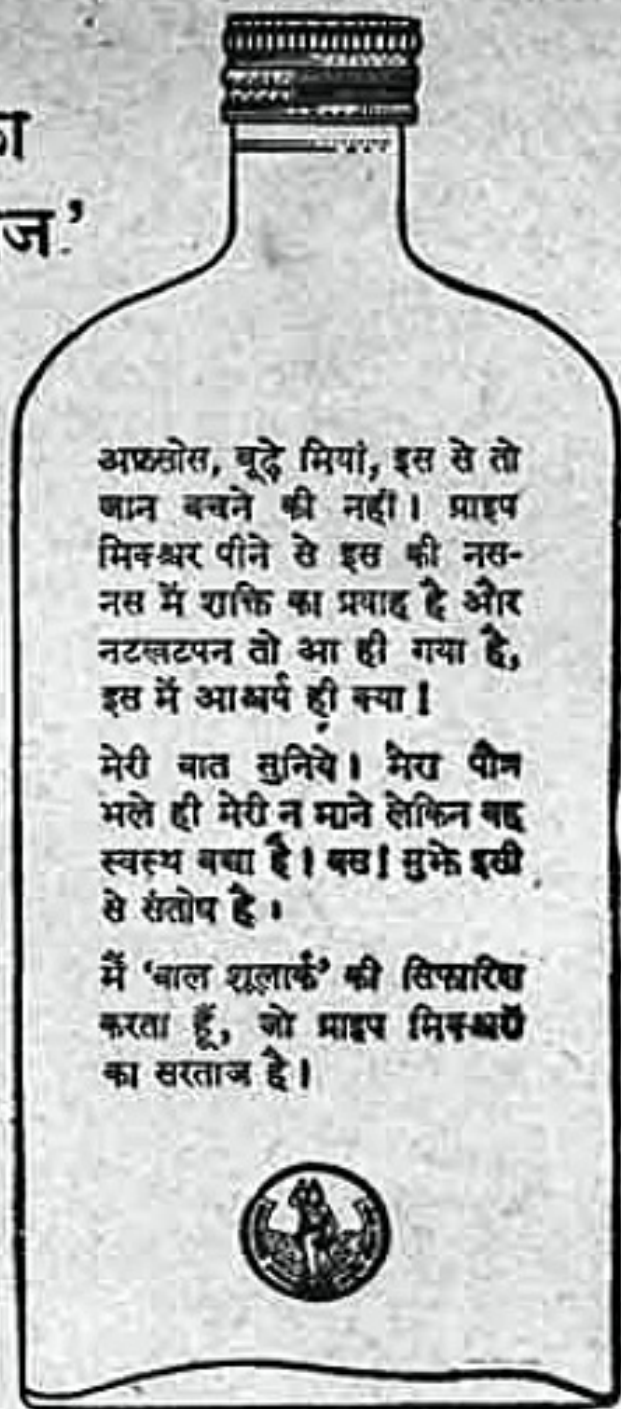 का
ज'
अफसोस, बूढ़े मियां, इस से तो
जान बचने की नहीं। ग्राइप
मिक्श्चर पीने से इस की नस-
नस में शक्ति का प्रवाह है और
नटखटपन तो आ ही गया है,
इस में आश्चर्य ही क्या!
मेरी बात सुनिये। मेरा पौत्र
भले ही मेरी न माने लेकिन वह
स्वस्थ बच्चा है। बस! मुझे इसी
से संतोष है।
मैं 'बाल शूलार्क' की सिफारिश
करता हूँ, जो ग्राइप मिक्श्चरों
का सरताज है।